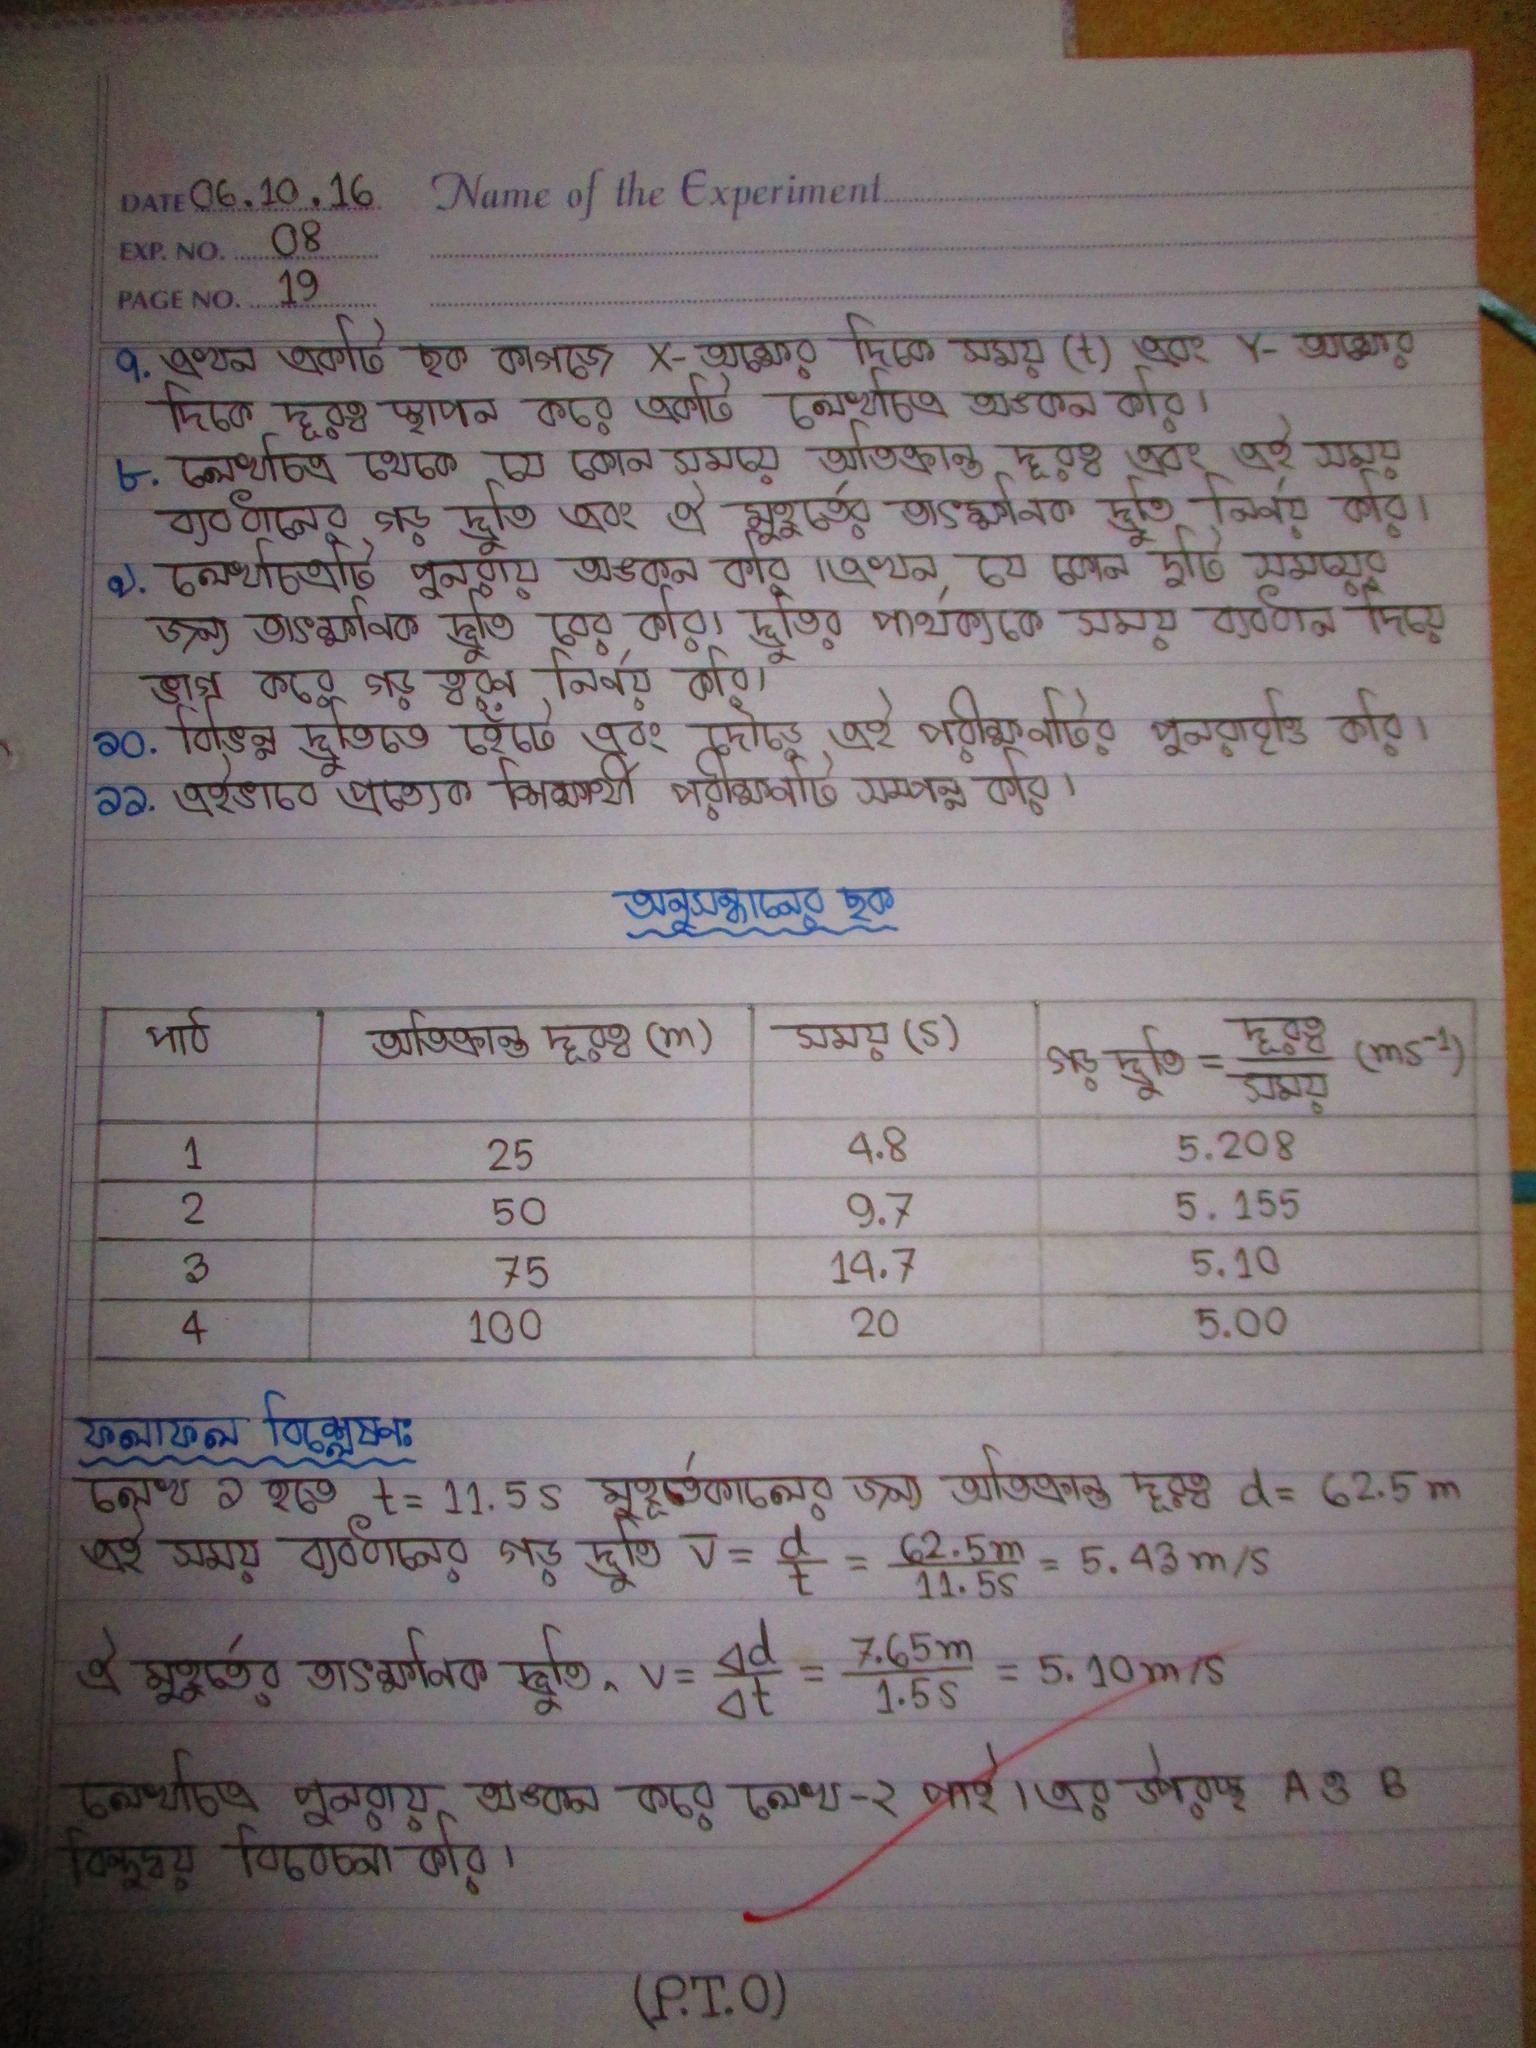 DATE 06.10.16 Name of the Experiment
EXP. NO. 08
PAGE NO. 19
৭. এখন একটি ছক কাগজে X- অক্ষের দিকে সময় (t) এবং Y- অক্ষের
দিকে দূরত্ব স্থাপন করে একটি লেখচিত্র অঙকন করি।
৮. লেখচিত্র থেকে যে কোন সময়ে অতিক্রান্ত দূরত্ব এবং এই সময়
ব্যবধানের গড় দ্রুতি এবং ঐ মুহূর্তের তাৎক্ষনিক দ্রুতি নির্নয় করি।
৯. লেখচিত্রটি পুনরায় অঙকন করি। এখন যে কোন দুটি সময়ের
জন্য তাৎক্ষনিক দ্রুতি বের করি। দ্রুতির পার্থক্যকে সময় ব্যবধান দিয়ে
ভাগ করে গড় ত্বরন নির্নয় করি।
১০. বিভিন্ন দ্রুতিতে হেঁটে এবং দৌড়ে এই পরীক্ষনটির পুনরাবৃত্তি করি।
১১. এইভাবে প্রত্যেক শিক্ষার্থী পরীক্ষনটি সম্পন্ন করি।
অনুসন্ধানের ছক
পাঠ অতিক্রান্ত দূরত্ব (m) সময় (s) গড় দ্রুতি = দূরত্ব / সময় (ms⁻¹)
1 25 4.8 5.208
2 50 9.7 5.155
3 75 14.7 5.10
4 100 20 5.00
ফলাফল বিশ্লেষনঃ
লেখ ১ হতে t = 11.5s মুহূর্তকালের জন্য অতিক্রান্ত দূরত্ব d = 62.5m
এই সময় ব্যবধানের গড় দ্রুতি v̅ = d/t = 62.5m/11.5s = 5.43 m/s
ঐ মুহূর্তের তাৎক্ষনিক দ্রুতি, v = Δd/Δt = 7.65m/1.5s = 5.10 m/s
লেখচিত্র পুনরায় অঙকন করে লেখ-২ পাই। এর উপরস্থ A ও B
বিন্দুদ্বয় বিবেচনা করি।
(P.T.O)